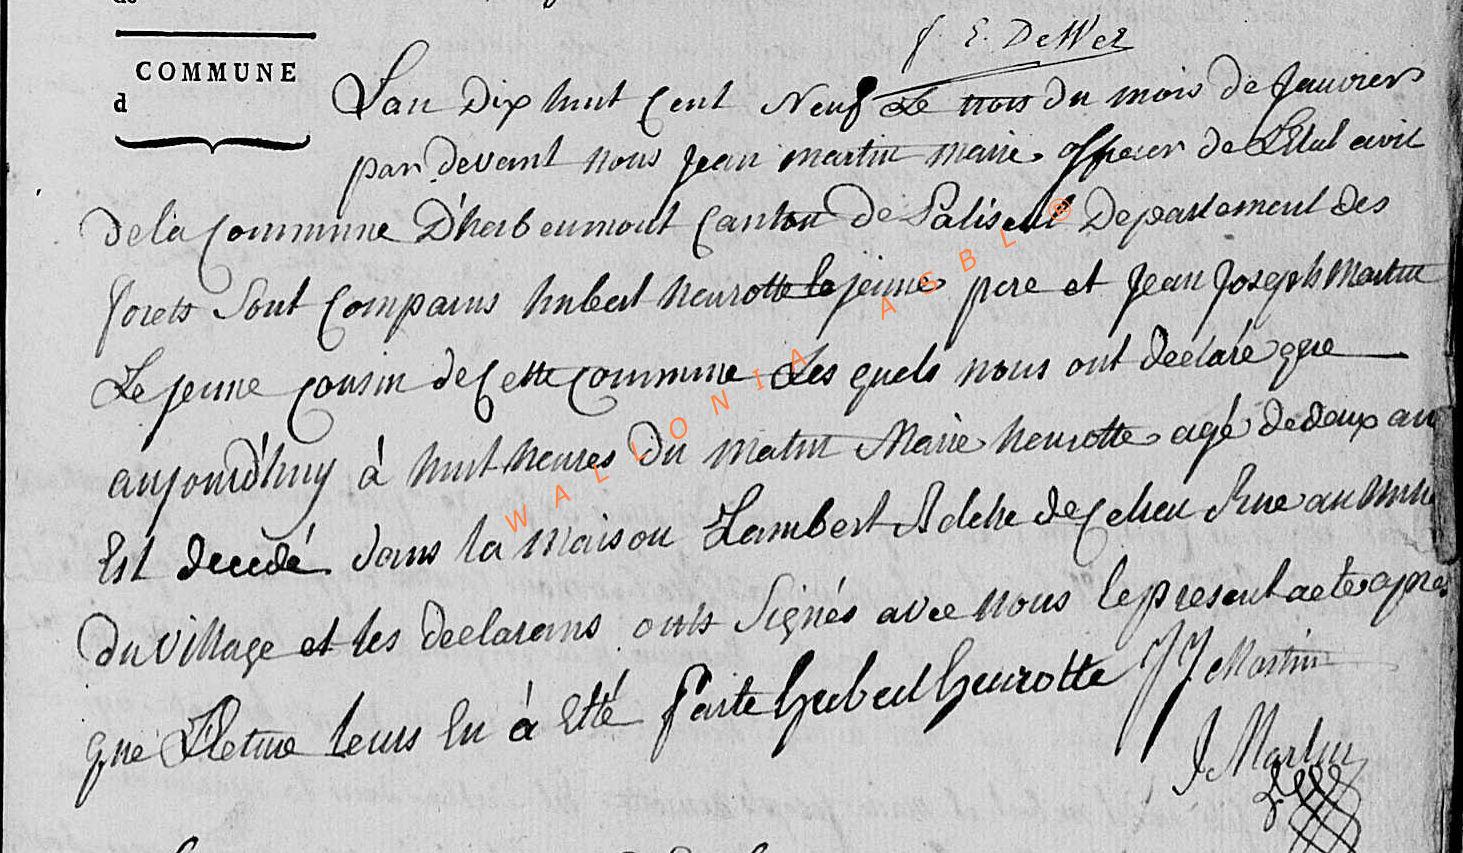 COMMUNE
d
J. E. DeWez
L'an Dix huit Cent Neuf Le trois du mois de Janvier
par devant nous Jean martin maire officier de L'Etat civil
de la Commune D'herbeumont Canton de Paliseul Departement des
forets Sont Comparus hubert heurotte le jeune pere et Jean Joseph Martin
Le jeune cousin de Cette Commune Les quels nous ont déclaré que
aujourd'huy à huit heures du matin Marie heurotte agé de deux an
Est decedé dans la maison Lambert de Celieu Rue au
Du Village et les declarans onts Signés avec nous le present acte apres
que Lecture leurs En à Etté faite hubert heurotte JJ Martin
J Martin
WALLONIA ASBL ®